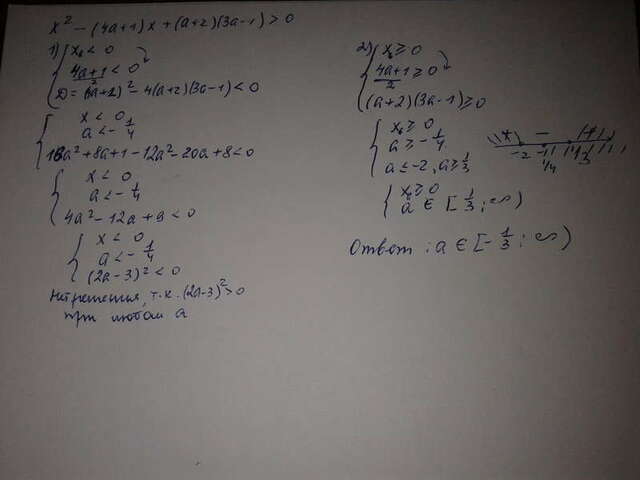 x² - (4a+1)x + (a+2)(3a-1) > 0
1) { x₀ < 0
4a+1 < 0
D = (4a+1)² - 4(a+2)(3a-1) < 0
{ x < 0
a < -1/4
16a² + 8a + 1 - 12a² - 20a + 8 < 0
{ x < 0
a < -1/4
4a² - 12a + 9 < 0
{ x < 0
a < -1/4
(2a-3)² < 0
Нет решения, т.к. (2a-3)² > 0
при любом a
2) { x₀ ≥ 0
(4a+1)/2 ≥ 0
(a+2)(3a-1) ≥ 0
{ x₀ ≥ 0
a ≥ -1/4
a ≤ -2, a ≥ 1/3
+ - +
-2 -1/4 1/3
{ x₀ ≥ 0
a ∈ [1/3; ∞)
Ответ: a ∈ [-1/3; ∞)